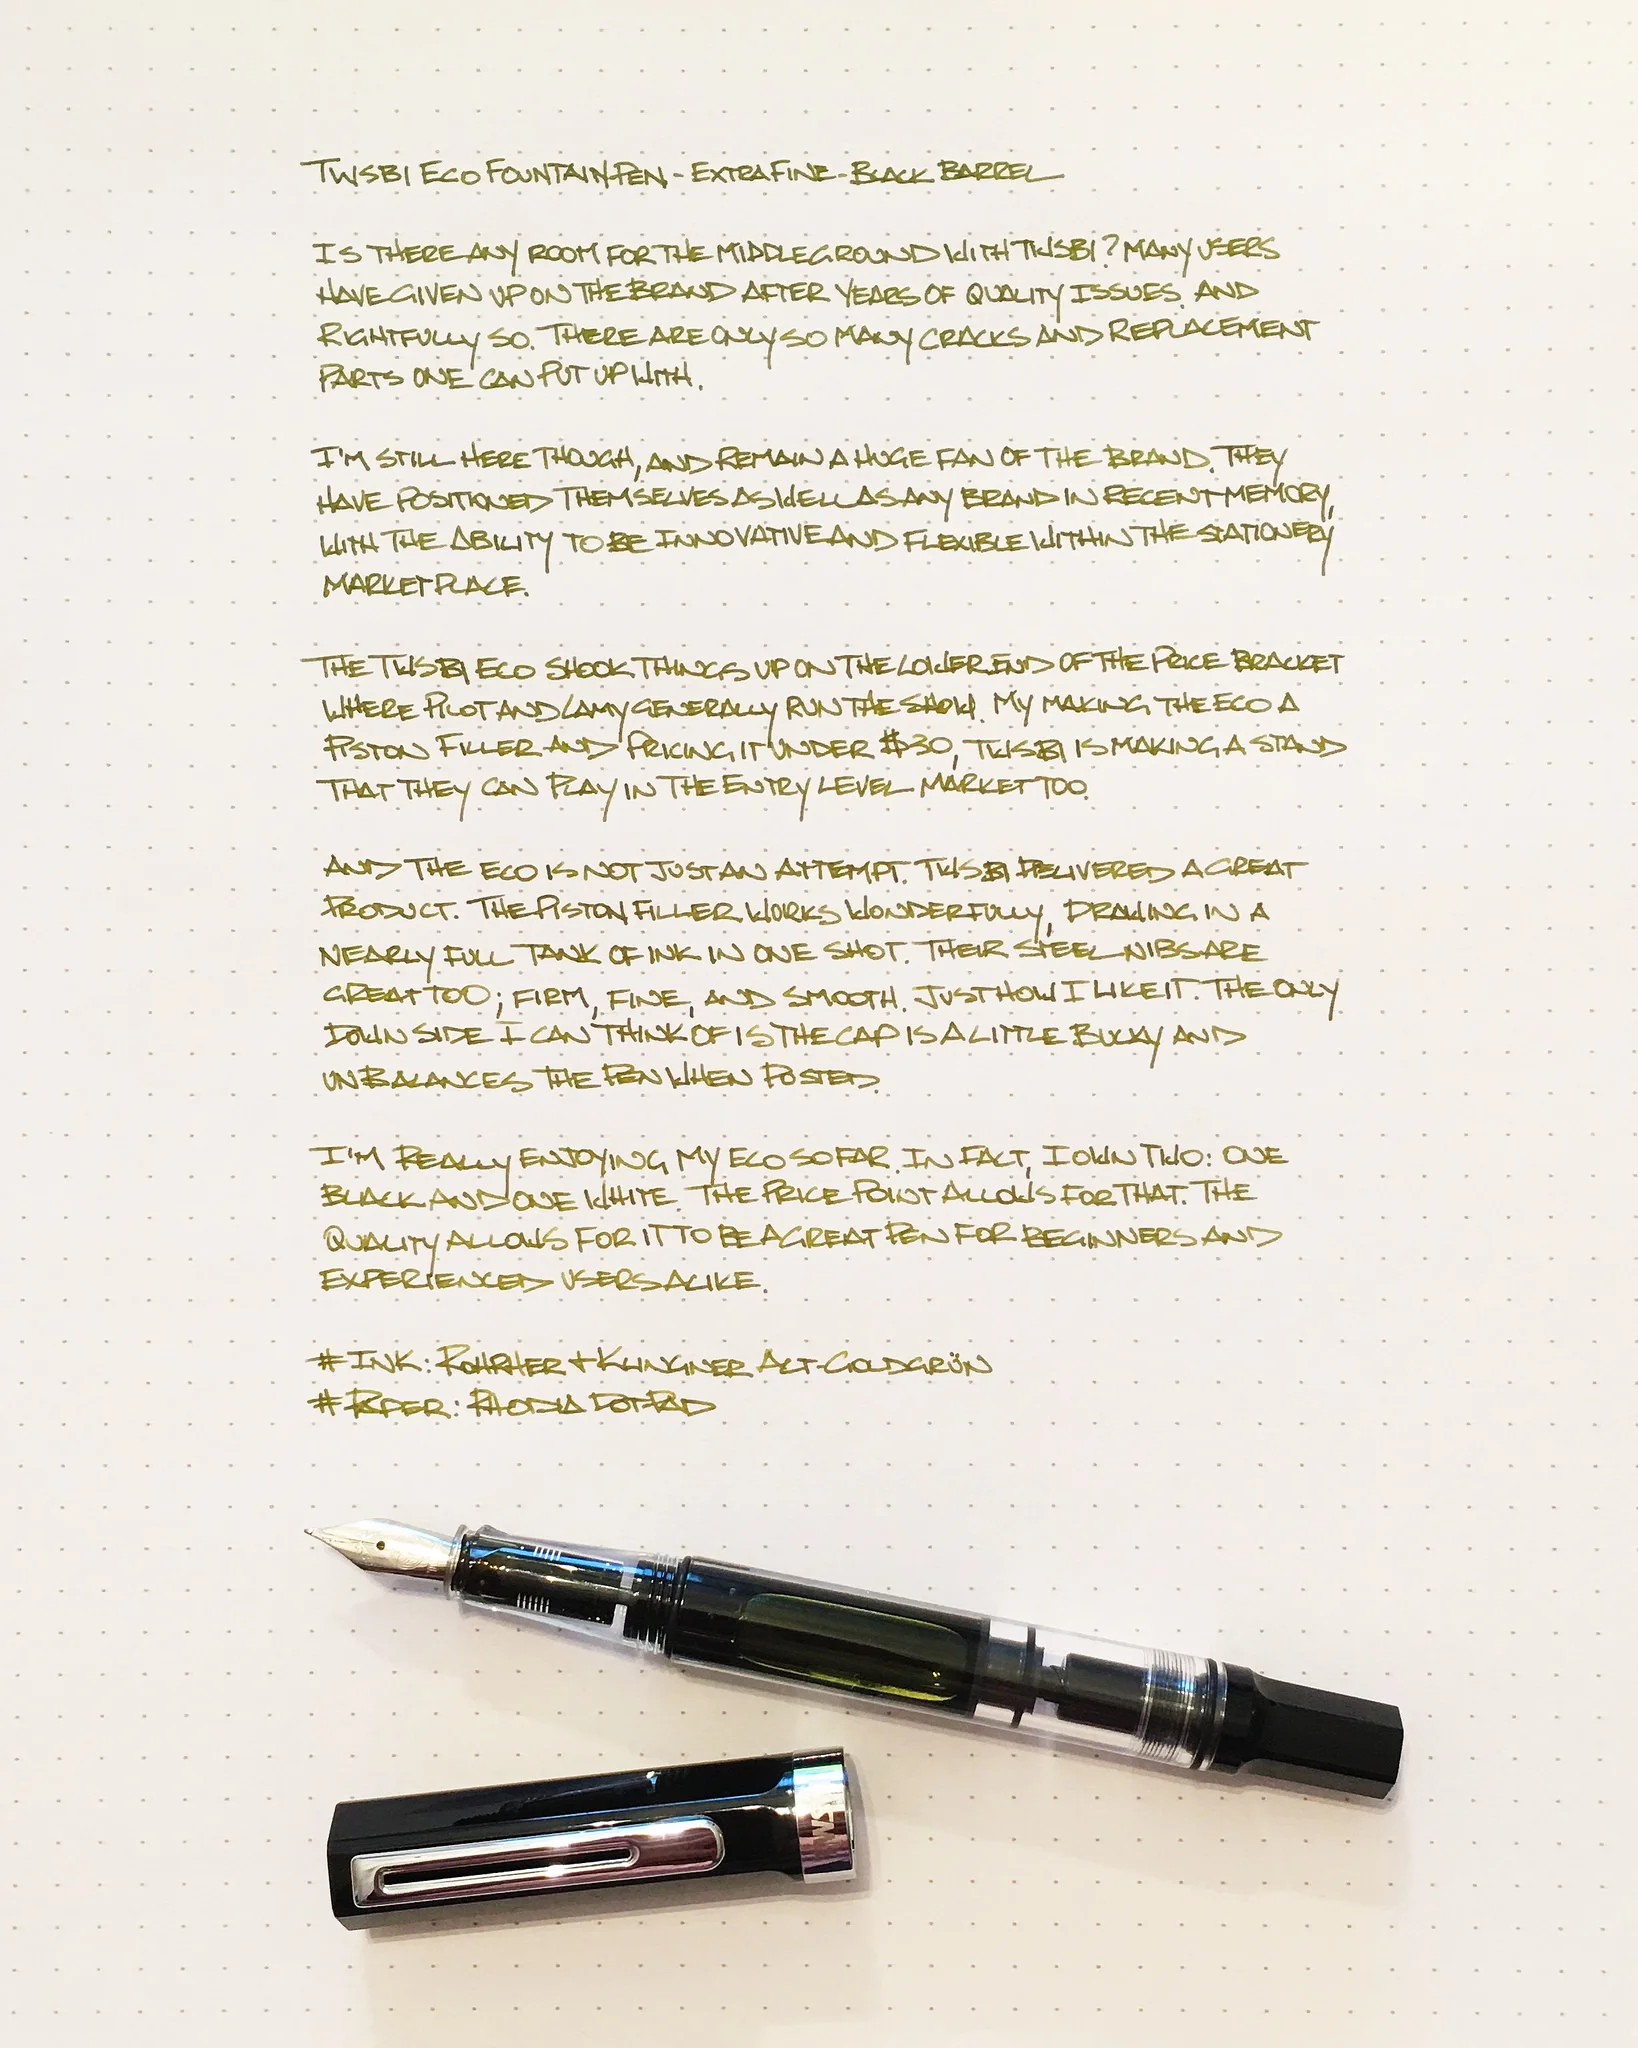 TWSBI ECO FOUNTAIN PEN - EXTRA FINE - BLACK BARREL
IS THERE ANY ROOM FOR THE MIDDLEGROUND WITH TWSBI? MANY USERS
HAVE GIVEN UP ON THE BRAND AFTER YEARS OF QUALITY ISSUES. AND
RIGHTFULLY SO. THERE ARE ONLY SO MANY CRACKS AND REPLACEMENT
PARTS ONE CAN PUT UP WITH.
I'M STILL HERE THOUGH, AND REMAIN A HUGE FAN OF THE BRAND. THEY
HAVE POSITIONED THEMSELVES AS WELL AS ANY BRAND IN RECENT MEMORY,
WITH THE ABILITY TO BE INNOVATIVE AND FLEXIBLE WITHIN THE STATIONERY
MARKETPLACE.
THE TWSBI ECO SHOOK THINGS UP ON THE LOWER END OF THE PRICE BRACKET
WHERE PILOT AND LAMY GENERALLY RUN THE SHOW. MY MAKING THE ECO A
PISTON FILLER AND PRICING IT UNDER $30, TWSBI IS MAKING A STAND
THAT THEY CAN PLAY IN THE ENTRY LEVEL MARKET TOO.
AND THE ECO IS NOT JUST AN ATTEMPT. TWSBI DELIVERED A GREAT
PRODUCT. THE PISTON FILLER WORKS WONDERFULLY, DRAWING IN A
NEARLY FULL TANK OF INK IN ONE SHOT. THEIR STEEL NIBS ARE
GREAT TOO; FIRM, FINE, AND SMOOTH. JUST HOW I LIKE IT. THE ONLY
DOWN SIDE I CAN THINK OF IS THE CAP IS A LITTLE BULKY AND
UNBALANCES THE PEN WHEN POSTED.
I'M REALLY ENJOYING MY ECO SO FAR. IN FACT, I OWN TWO: ONE
BLACK AND ONE WHITE. THE PRICE POINT ALLOWS FOR THAT. THE
QUALITY ALLOWS FOR IT TO BE A GREAT PEN FOR BEGINNERS AND
EXPERIENCED USERS ALIKE.
# INK: ROHRHER + KLINGNER ALT-GOLDGRÜN
# PAPER: RHODIA DOTPAD